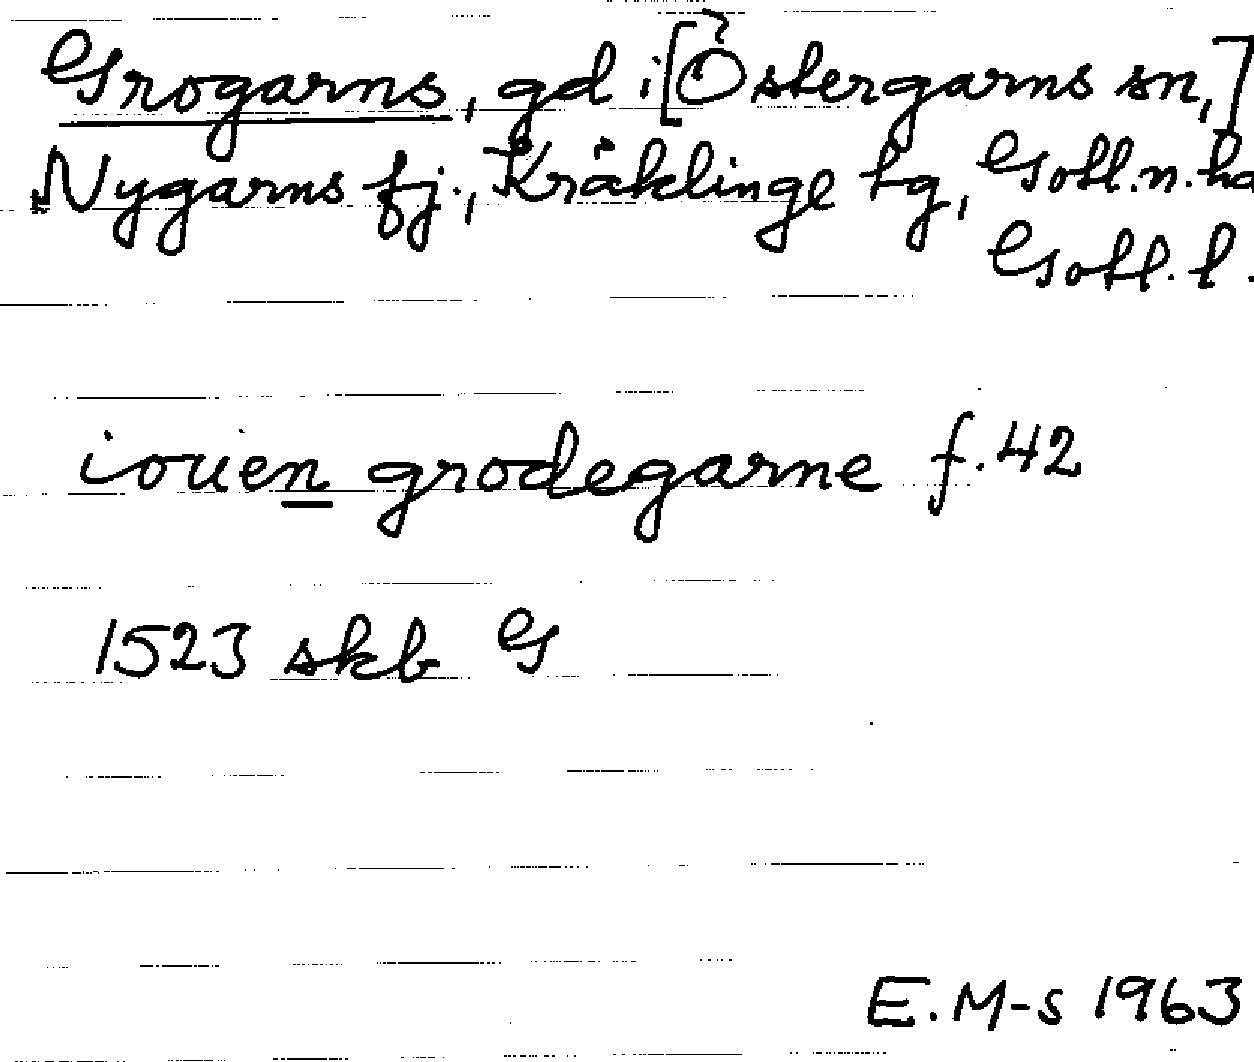 Grogarns, gd i [Östergarns sn,]
Nygarns fj., Kräklinge tg, Gotl. n. hd
Gotl. l.
iouen grodegarne f. 42
1523 skb G
E. M-s 1963